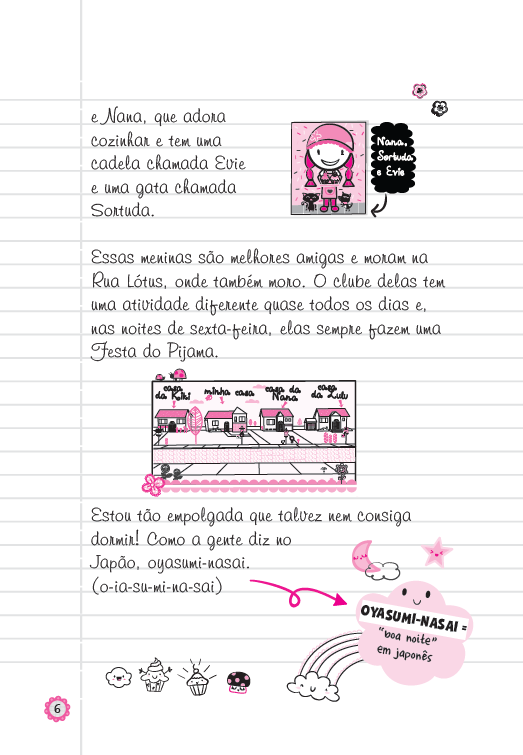 e Nana, que adora
cozinhar e tem uma
cadela chamada Evie
e uma gata chamada
Sortuda.
Nana,
Sortuda
e Evie
Essas meninas são melhores amigas e moram na
Rua Lótus, onde também moro. O clube delas tem
uma atividade diferente quase todos os dias e,
nas noites de sexta-feira, elas sempre fazem uma
Festa do Pijama.
casa
da Kiki
minha casa
casa da
Nana
casa
da Lulu
Estou tão empolgada que talvez nem consiga
dormir! Como a gente diz no
Japão, oyasumi-nasai.
(o-ia-su-mi-na-sai)
OYASUMI-NASAI =
"boa noite"
em japonês
6